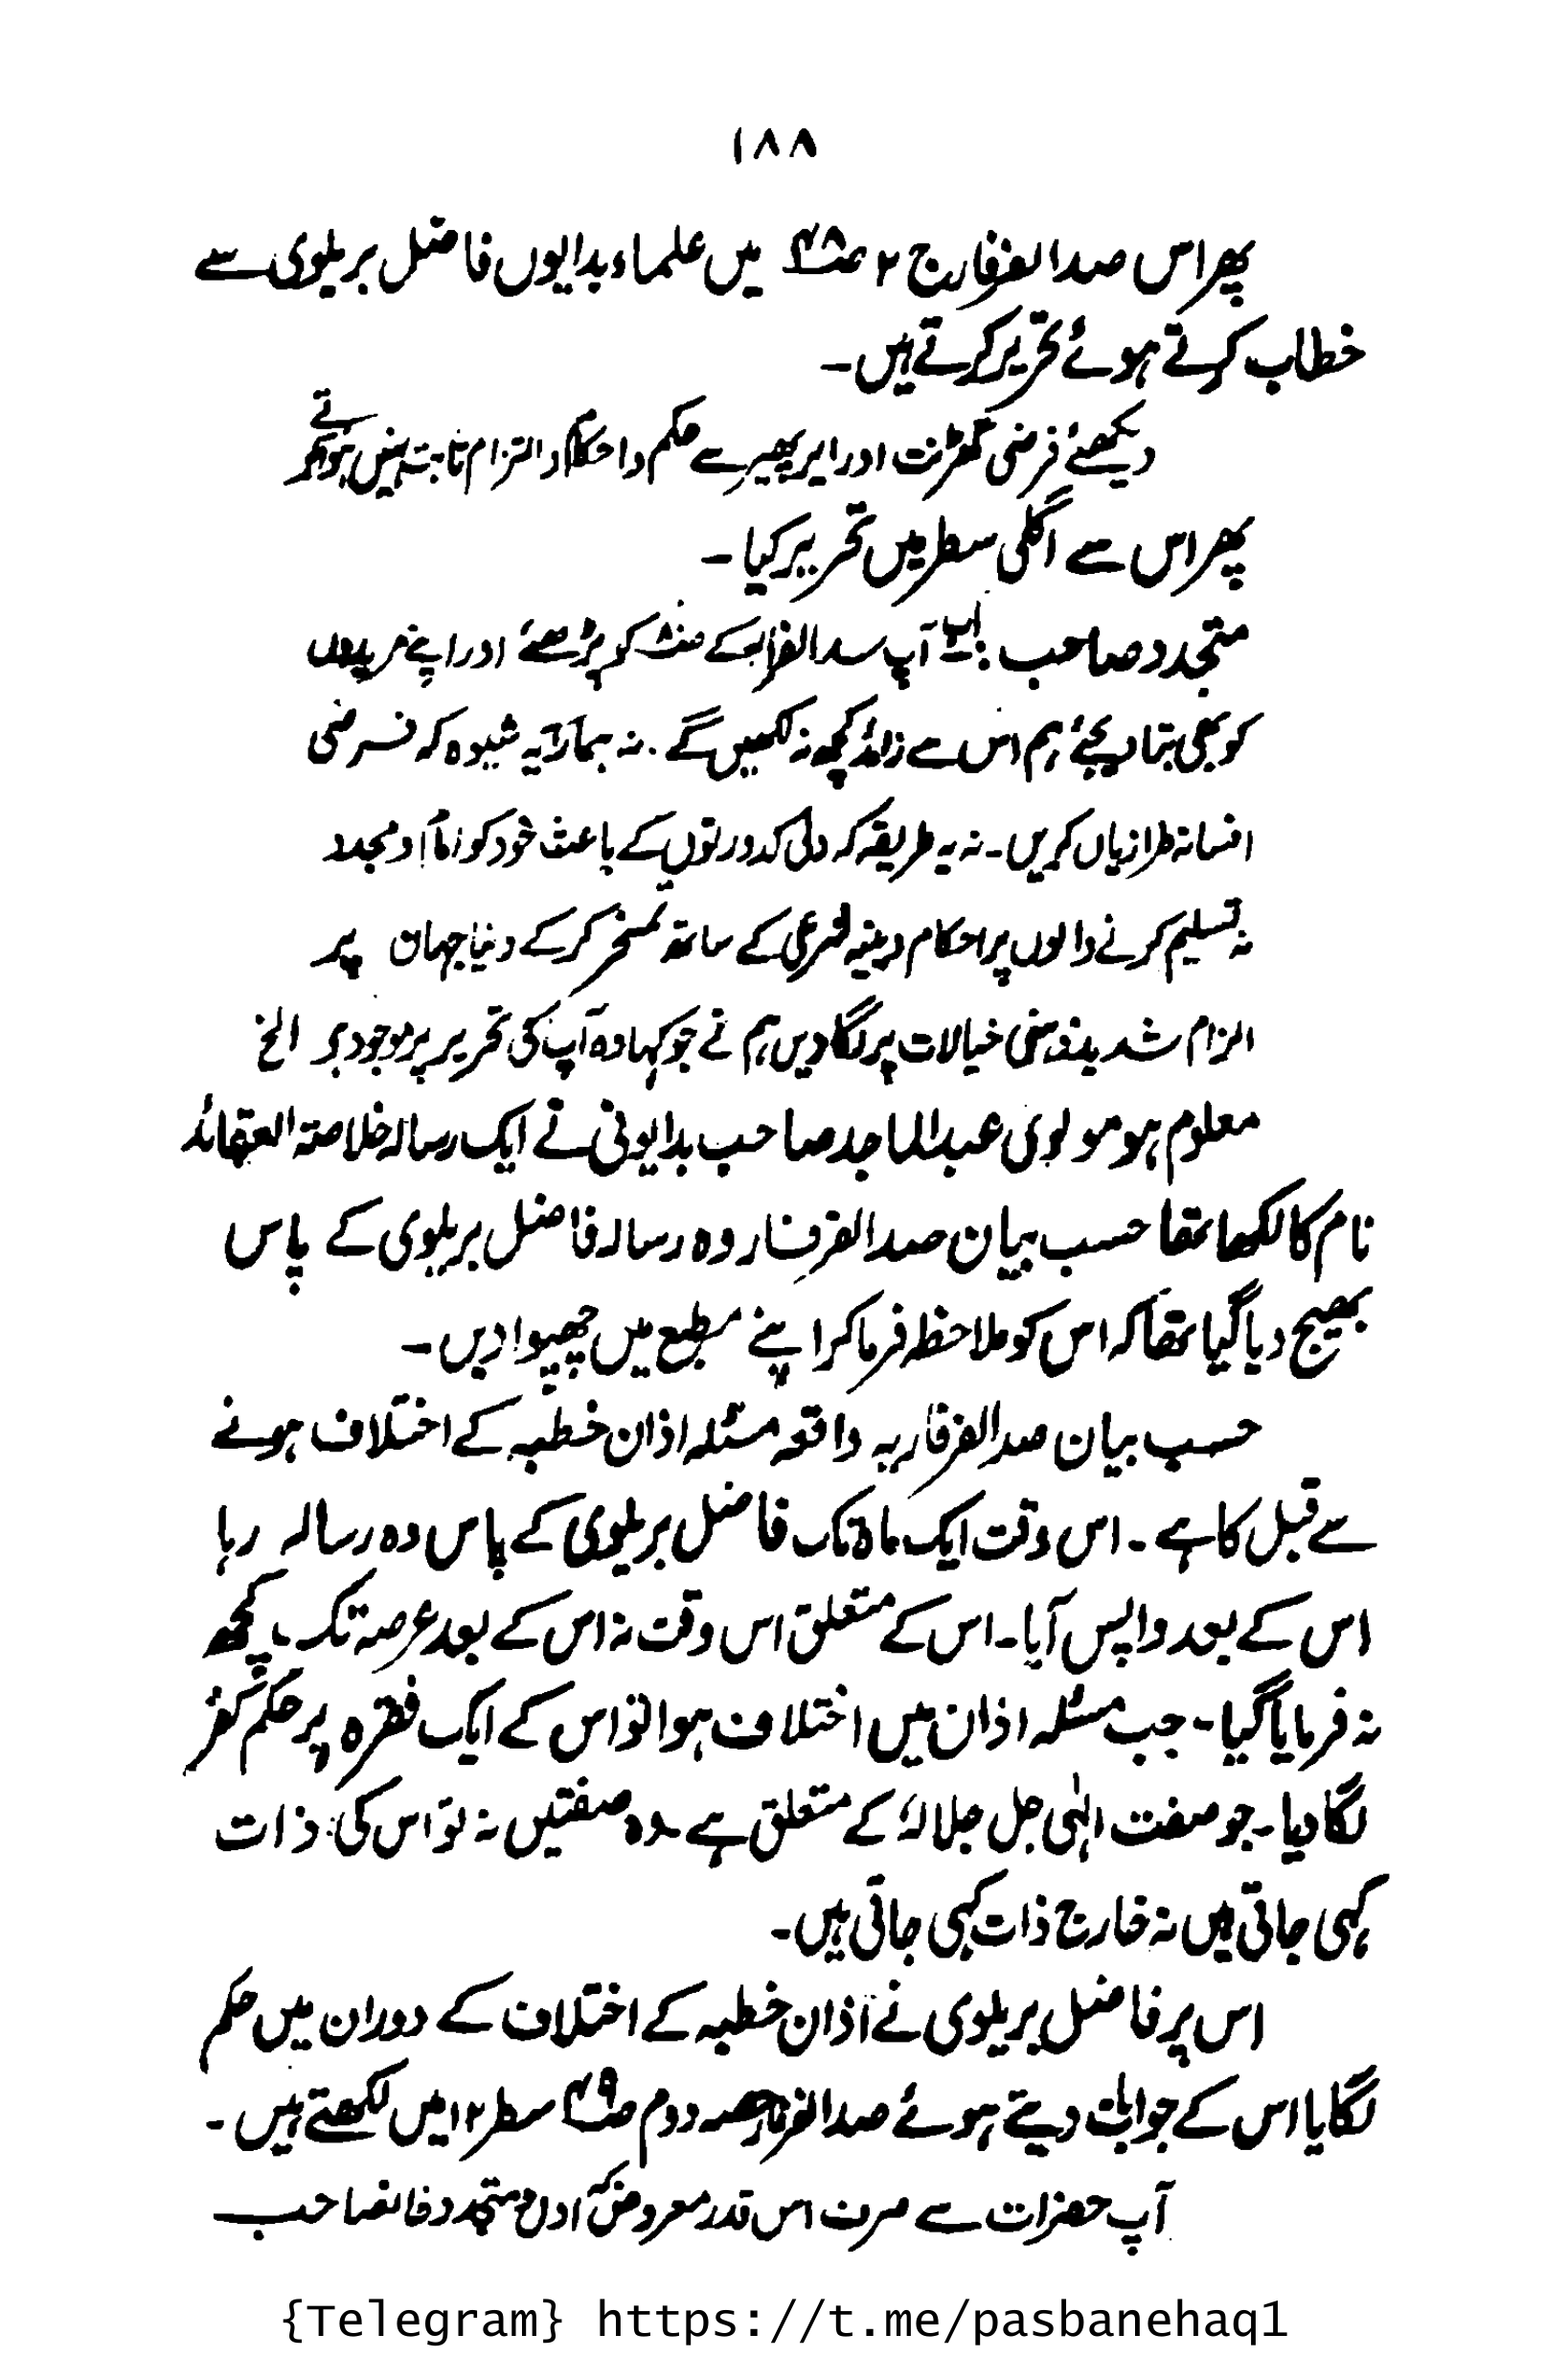 ۱۸۸
پھر اس صدالفرفار ج ۲ ص۴۸ میں علماء بدایوں فاضل بریلوی سے
خطاب کرتے ہوئے تحریر کرتے ہیں۔
دیکھئے فرضی گھڑنت اور ایر پھیر سے حکم و احکام و التزام ثابت نہیں ہوتے
پھر اس سے اگلی سطر میں تحریر کیا۔
متجدد صاحب! آپ سدالفرار کے کو پڑھئے اور اپنے مریدوں
کو بھی بتا دیجئے ہم اس سے زائد کچھ نہ لکھیں گے۔ نہ ہمارا یہ شیوہ کہ فرضی
افسانہ طرازیاں کریں۔ نہ یہ طریقہ کہ دلی کدورتوں کے باعث خود کو اماً او مجدد
نہ تسلیم کرنے والوں پر احکام دینیہ شرعی کے ساتھ تمسخر کر کے دنیا جہان پر
الزام شدید فرضی خیالات پر لگا دیں ہم نے جو کہا وہ آپ کی تحریر پر موجود ہے الخ
معلوم ہو مولوی عبدالماجد صاحب بدایونی نے ایک رسالہ خلاصتہ العقائد
نام کا لکھا تھا حسب بیان صدالفرفار وہ رسالہ فاضل بریلوی کے پاس
بھیج دیا گیا تھا کہ اس کو ملاحظہ فرما کر اپنے مطبع میں چھپوا دیں۔
حسب بیان صدالفرفار یہ واقعہ مسئلہ اذان خطبہ کے اختلاف ہونے
سے قبل کا ہے۔ اس وقت ایک ماہ تک فاضل بریلوی کے پاس وہ رسالہ رہا
اس کے بعد واپس آیا۔ اس کے متعلق اس وقت نہ اس کے بعد عرصہ تک کچھ
نہ فرمایا گیا۔ جب مسئلہ اذان میں اختلاف ہوا تو اس کے ایک فقرہ پر حکم کفر
لگا دیا۔ جو صفت الٰہی جل جلالہٗ کے متعلق ہے۔ وہ صفتیں نہ تو اس کی ذات
کہی جاتی ہیں نہ خارج ذات کہی جاتی ہیں۔
اس پر فاضل بریلوی نے اذان خطبہ کے اختلاف کے دوران میں حکم
لگایا اس کے جوابات دیتے ہوئے صدالفرفار حصہ دوم ص۴۹ سطر ۱۲ میں لکھتے ہیں۔
آپ حضرات سے صرف اس قدر معروض کہ اول متجدد خانصاحب
{Telegram} https://t.me/pasbanehaq1